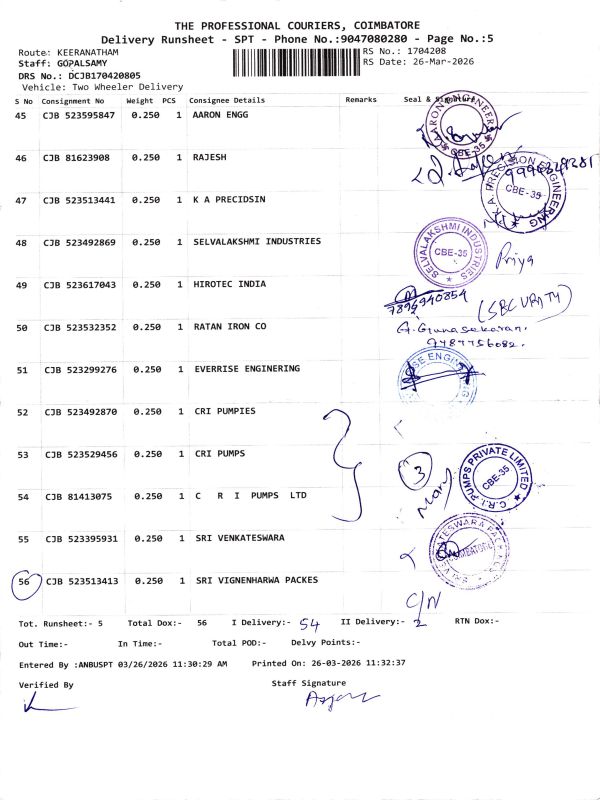 THE PROFESSIONAL COURIERS, COIMBATORE
Delivery Runsheet - SPT - Phone No.:9047080280 - Page No.:5
Route: KEERANATHAM RS No.: 1704208
Staff: GOPALSAMY RS Date: 26-Mar-2026
DRS No.: DCJB170420805
Vehicle: Two Wheeler Delivery
S No Consignment No Weight PCS Consignee Details Remarks Seal & Signature
45 CJB 523595847 0.250 1 AARON ENGG
AARON ENGINEERS CBE-35
46 CJB 81623908 0.250 1 RAJESH
47 CJB 523513441 0.250 1 K A PRECIDSIN
K.A. PRECISION ENGINEERING CBE-35
48 CJB 523492869 0.250 1 SELVALAKSHMI INDUSTRIES
SELVALAKSHMI INDUSTRIES CBE-35 Priya
49 CJB 523617043 0.250 1 HIROTEC INDIA
7894940854 (SECURATY)
50 CJB 523532352 0.250 1 RATAN IRON CO
G. Gunasekaran.
9787756082.
51 CJB 523299276 0.250 1 EVERRISE ENGINERING
52 CJB 523492870 0.250 1 CRI PUMPIES
53 CJB 523529456 0.250 1 CRI PUMPS
3
C.R.I. PUMPS PRIVATE LIMITED CBE-35
Mary
54 CJB 81413075 0.250 1 C R I PUMPS LTD
55 CJB 523395931 0.250 1 SRI VENKATESWARA
56 CJB 523513413 0.250 1 SRI VIGNENHARWA PACKES
C/N
Tot. Runsheet:- 5 Total Dox:- 56 I Delivery:- 54 II Delivery:- 2 RTN Dox:-
Out Time:- In Time:- Total POD:- Delvy Points:-
Entered By :ANBUSPT 03/26/2026 11:30:29 AM Printed On: 26-03-2026 11:32:37
Verified By Staff Signature